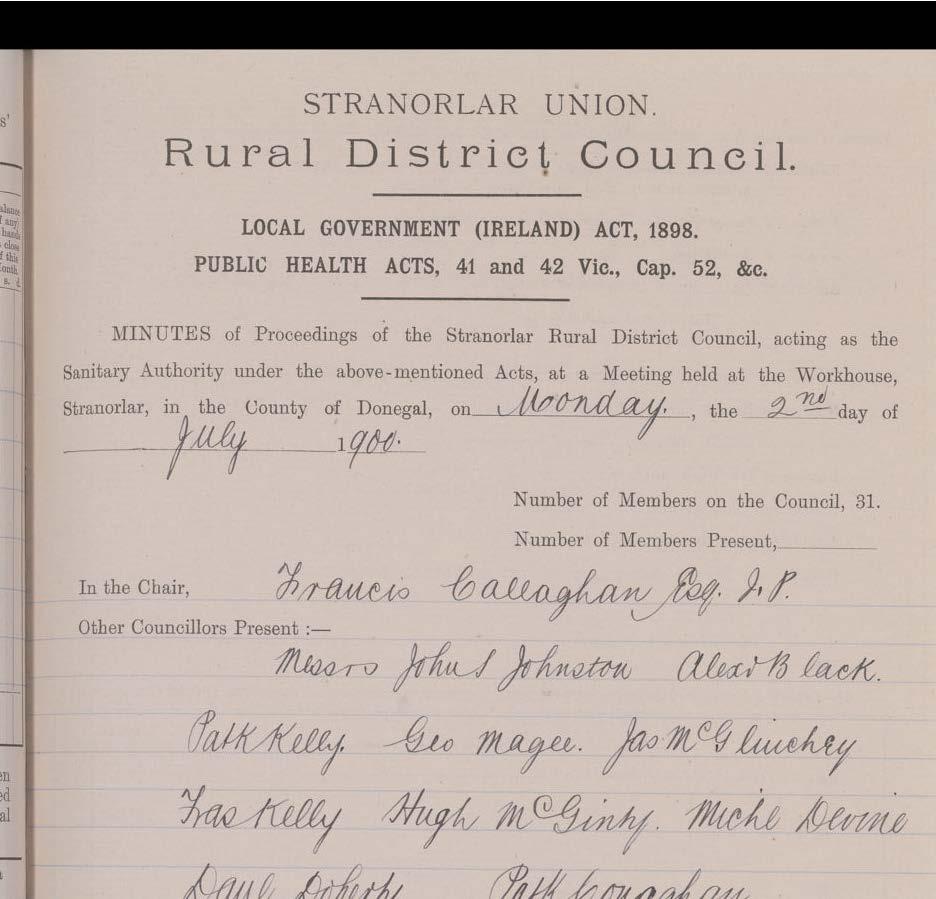 STRANORLAR UNION.
Rural District Council.
LOCAL GOVERNMENT (IRELAND) ACT, 1898.
PUBLIC HEALTH ACTS, 41 and 42 Vic., Cap. 52, &c.
MINUTES of Proceedings of the Stranorlar Rural District Council, acting as the
Sanitary Authority under the above-mentioned Acts, at a Meeting held at the Workhouse,
Stranorlar, in the County of Donegal, on Monday. , the 2nd day of
July 1900.
Number of Members on the Council, 31.
Number of Members Present,
In the Chair, Francis Callaghan Esq. J.P.
Other Councillors Present :—
Messrs John S Johnston Alexr Black.
Patk Kelly. Geo Magee. Jas McGlinchey
Fras Kelly Hugh McGinty. Michl Devine
Danl Doherty Patk Conaghan
s'
alance
f any)
hands
close
f this
onth.
s. d.
en
ed
al
t